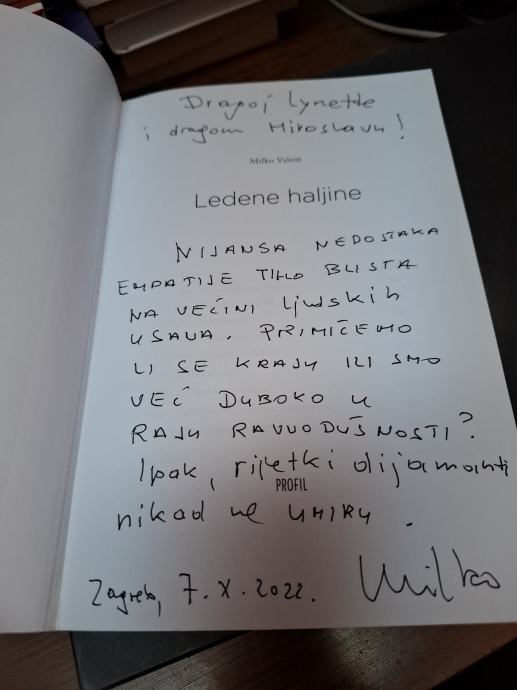 Dragoj Lynette
i dragom Miroslavu!
Milko Valent
Ledene haljine
NIJANSA NEDOSTAKA
EMPATIJE TIHO BLISTA
NA VEĆINI ljudskih
USANA. PRIMIČEMO
LI SE KRAJU ILI SMO
VEĆ DUBOKO U
RAJU RAVNODUŠNOSTI?
Ipak, rijetki dijamanti
PROFIL
nikad ne UMIRU.
Zagreb, 7. X. 2022. Milko